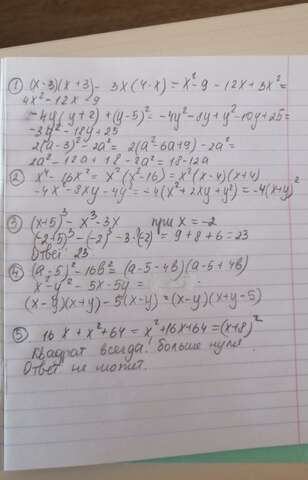 ① (x-3)(x+3) - 3x(4-x) = x²-9-12x+3x²=
4x²-12x-9
-4y(y+2)+(y-5)² = -4y²-8y+y²-10y+25=
-3y²-18y+25
2(a-3)²-2a² = 2(a²-6a+9)-2a²=
2a²-12a+18-2a²= 18-12a
② x⁴-16x² = x²(x²-16) = x²(x-4)(x+4)
-4x²-8xy-4y²= -4(x²+2xy+y²) = -4(x+y)²
③ (x+5)³-x³-3x при x = -2
(-2+5)³-(-2)³-3·(-2) = 9+8+6=23
Ответ 23
④ (a-5)²-16b²= (a-5-4b)(a-5+4b)
x²-y²-5x-5y =
(x-y)(x+y)-5(x-y) = (x-y)(x+y-5)
⑤ 16x+x²+64 = x²+16x+64=(x+8)²
Квадрат всегда больше нуля.
Ответ не может.